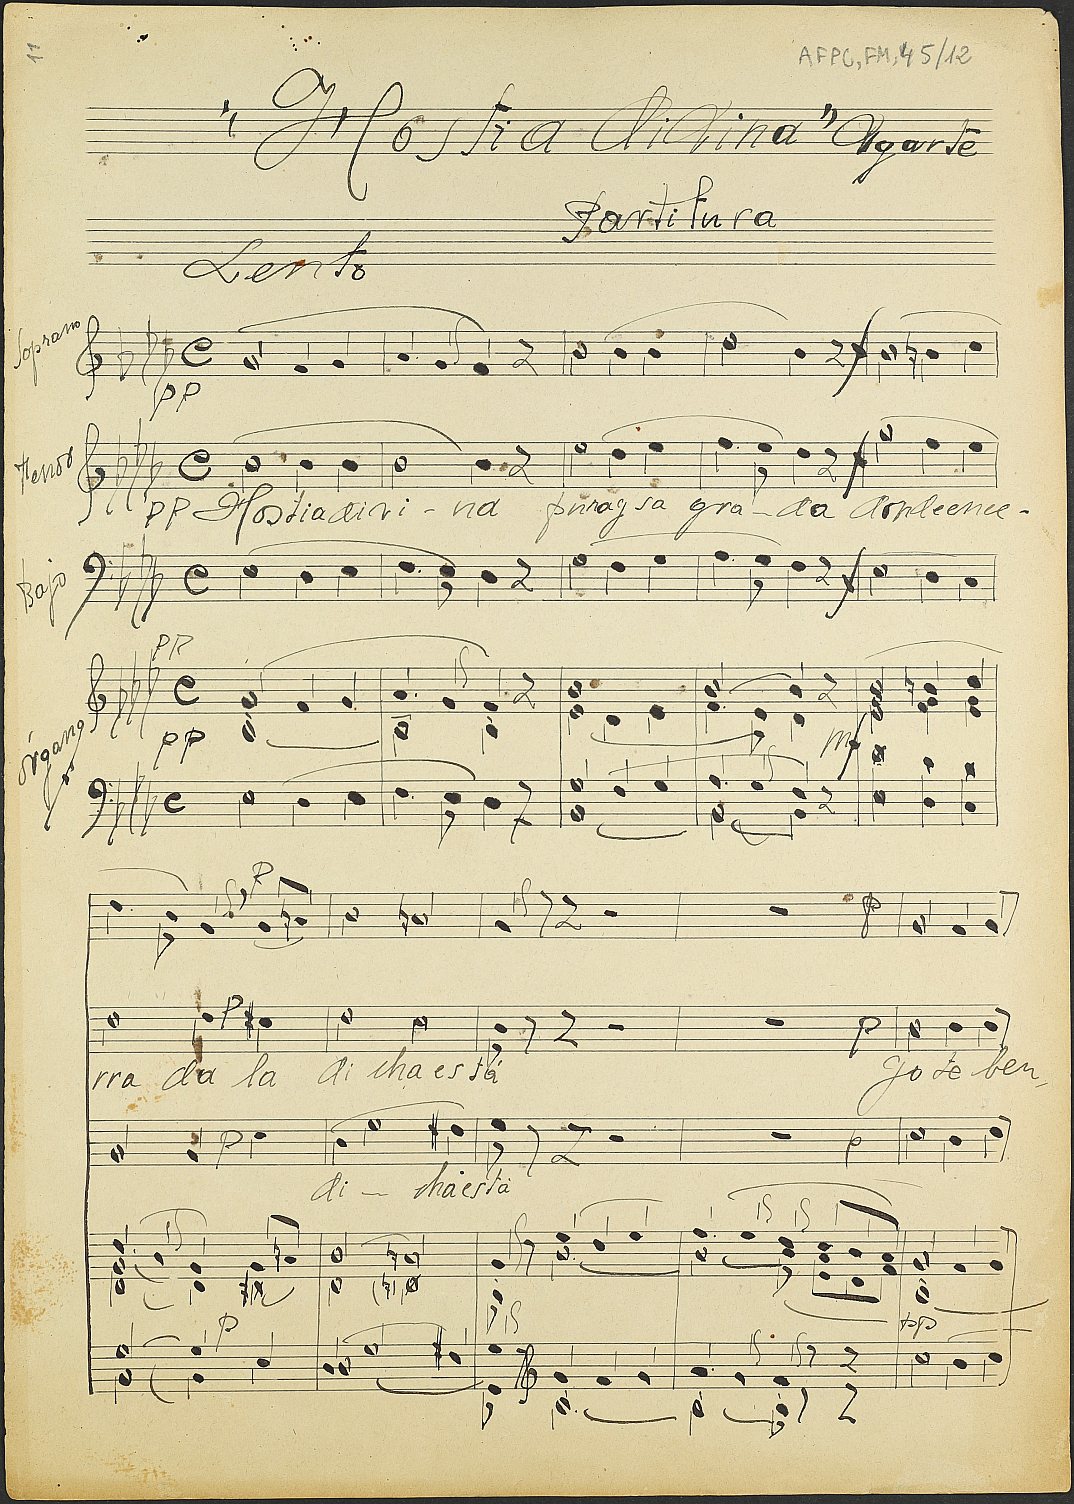 11
AFPC, FM, 45/12
"Hostia divina" Ugarte
Partitura
Lento
Soprano
pp
Tenor
pp Hostia divi - na pura y sa gra - da do
Bajo
pp
órgano
pp
mf
p
p
p
rra da la di cha está
Yo te ben,
p
p
di - cha está
p
pp